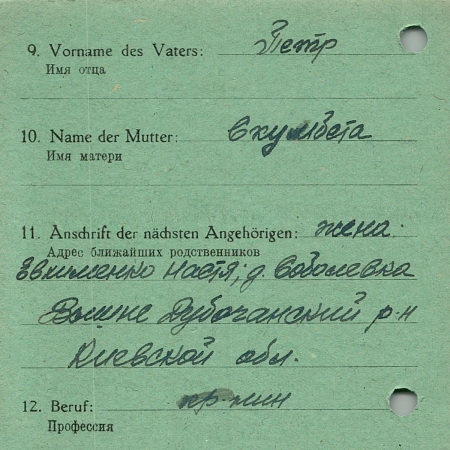 9. Vorname des Vaters: Петр
Имя отца
10. Name der Mutter:
Имя матери
11. Anschrift der nächsten Angehörigen: жена.
Адрес ближайших родственников
Евхименко Настя; д. Соболевка
Дубочанский р-н
Киевской обл.
12. Beruf:
Профессия